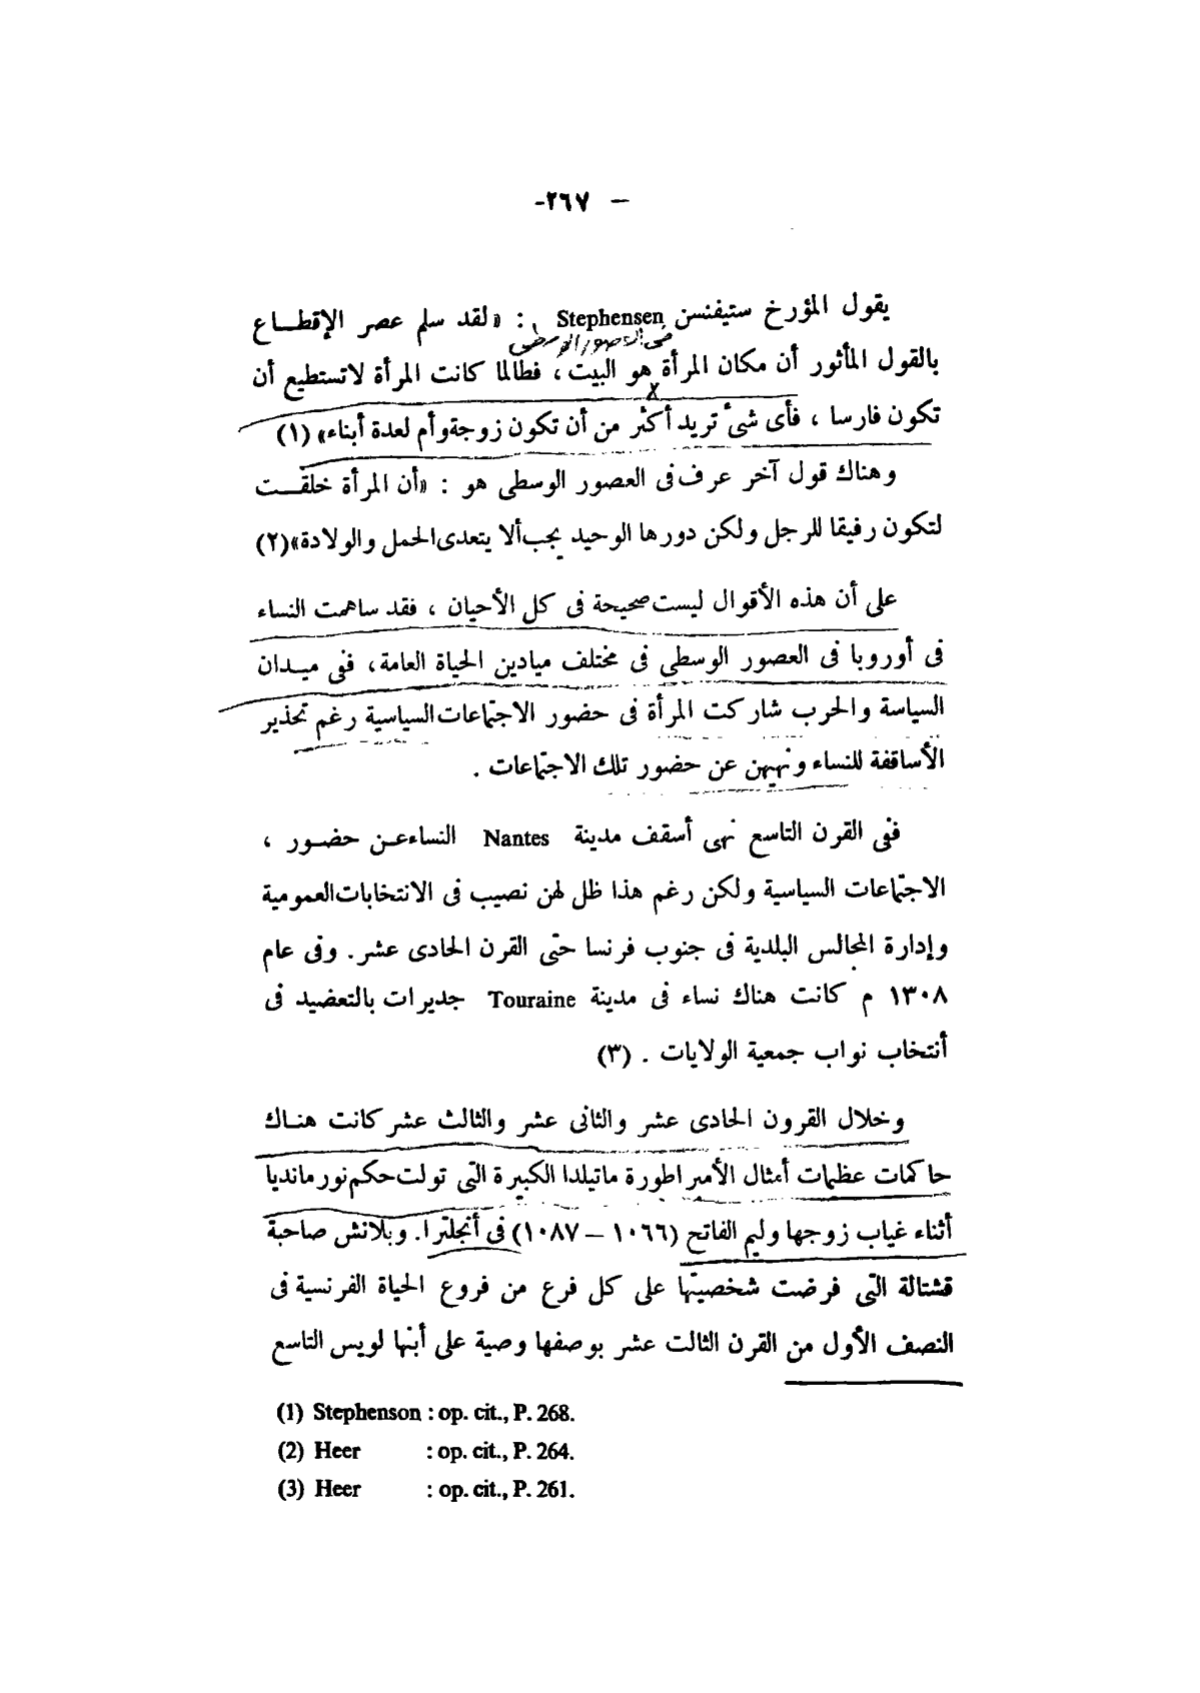 — ٢٦٧-
يقول المؤرخ ستيفنسن Stephensen : «لقد سلم عصر الإقطــاع
فى العصور الوسطى
بالقول المأثور أن مكان المرأة هو البيت ، فطالما كانت المرأة لاتستطيع أن
تكون فارسا ، فأى شىٔ تريد أكثر من أن تكون زوجة وأم لعدة أبناء» (١)
وهناك قول آخر عرف فى العصور الوسطى هو : «أن المرأة خلقــت
لتكون رفيقا للرجل ولكن دورها الوحيد يجب ألا يتعدى الحمل والولادة» (٢)
على أن هذه الأقوال ليست صحيحة فى كل الأحيان ، فقد ساهمت النساء
فى أوروبا فى العصور الوسطى فى مختلف ميادين الحياة العامة ، ففى ميـدان
السياسة والحرب شاركت المرأة فى حضور الاجتماعات السياسية رغم تحذير
الأساقفة للنساء ونهيهن عن حضور تلك الاجتماعات .
ففى القرن التاسع نهى أسقف مدينة Nantes النساء عـن حضـور ،
الاجتماعات السياسية ولكن رغم هذا ظل لهن نصيب فى الانتخابات العمومية
وإدارة المجالس البلدية فى جنوب فرنسا حتى القرن الحادى عشر . وفى عام
١٣٠٨ م كانت هناك نساء فى مدينة Touraine جديرات بالتعضيد فى
أنتخاب نواب جمعية الولايات . (٣)
وخلال القرون الحادى عشر والثانى عشر والثالث عشر كانت هنـاك
حاكمات عظمات أمثال الأمبراطورة ماتيلدا الكبيرة التى تولت حكم نورمانديا
أثناء غياب زوجها وليم الفاتح (١٠٦٦ – ١٠٨٧) فى أنجلترا. وبلانش صاحبة
قشتالة التى فرضت شخصيتها على كل فرع من فروع الحياة الفرنسية فى
النصف الأول من القرن الثالت عشر بوصفها وصية على أبنها لويس التاسع
(1) Stephenson : op. cit., P. 268.
(2) Heer : op. cit., P. 264.
(3) Heer : op. cit., P. 261.